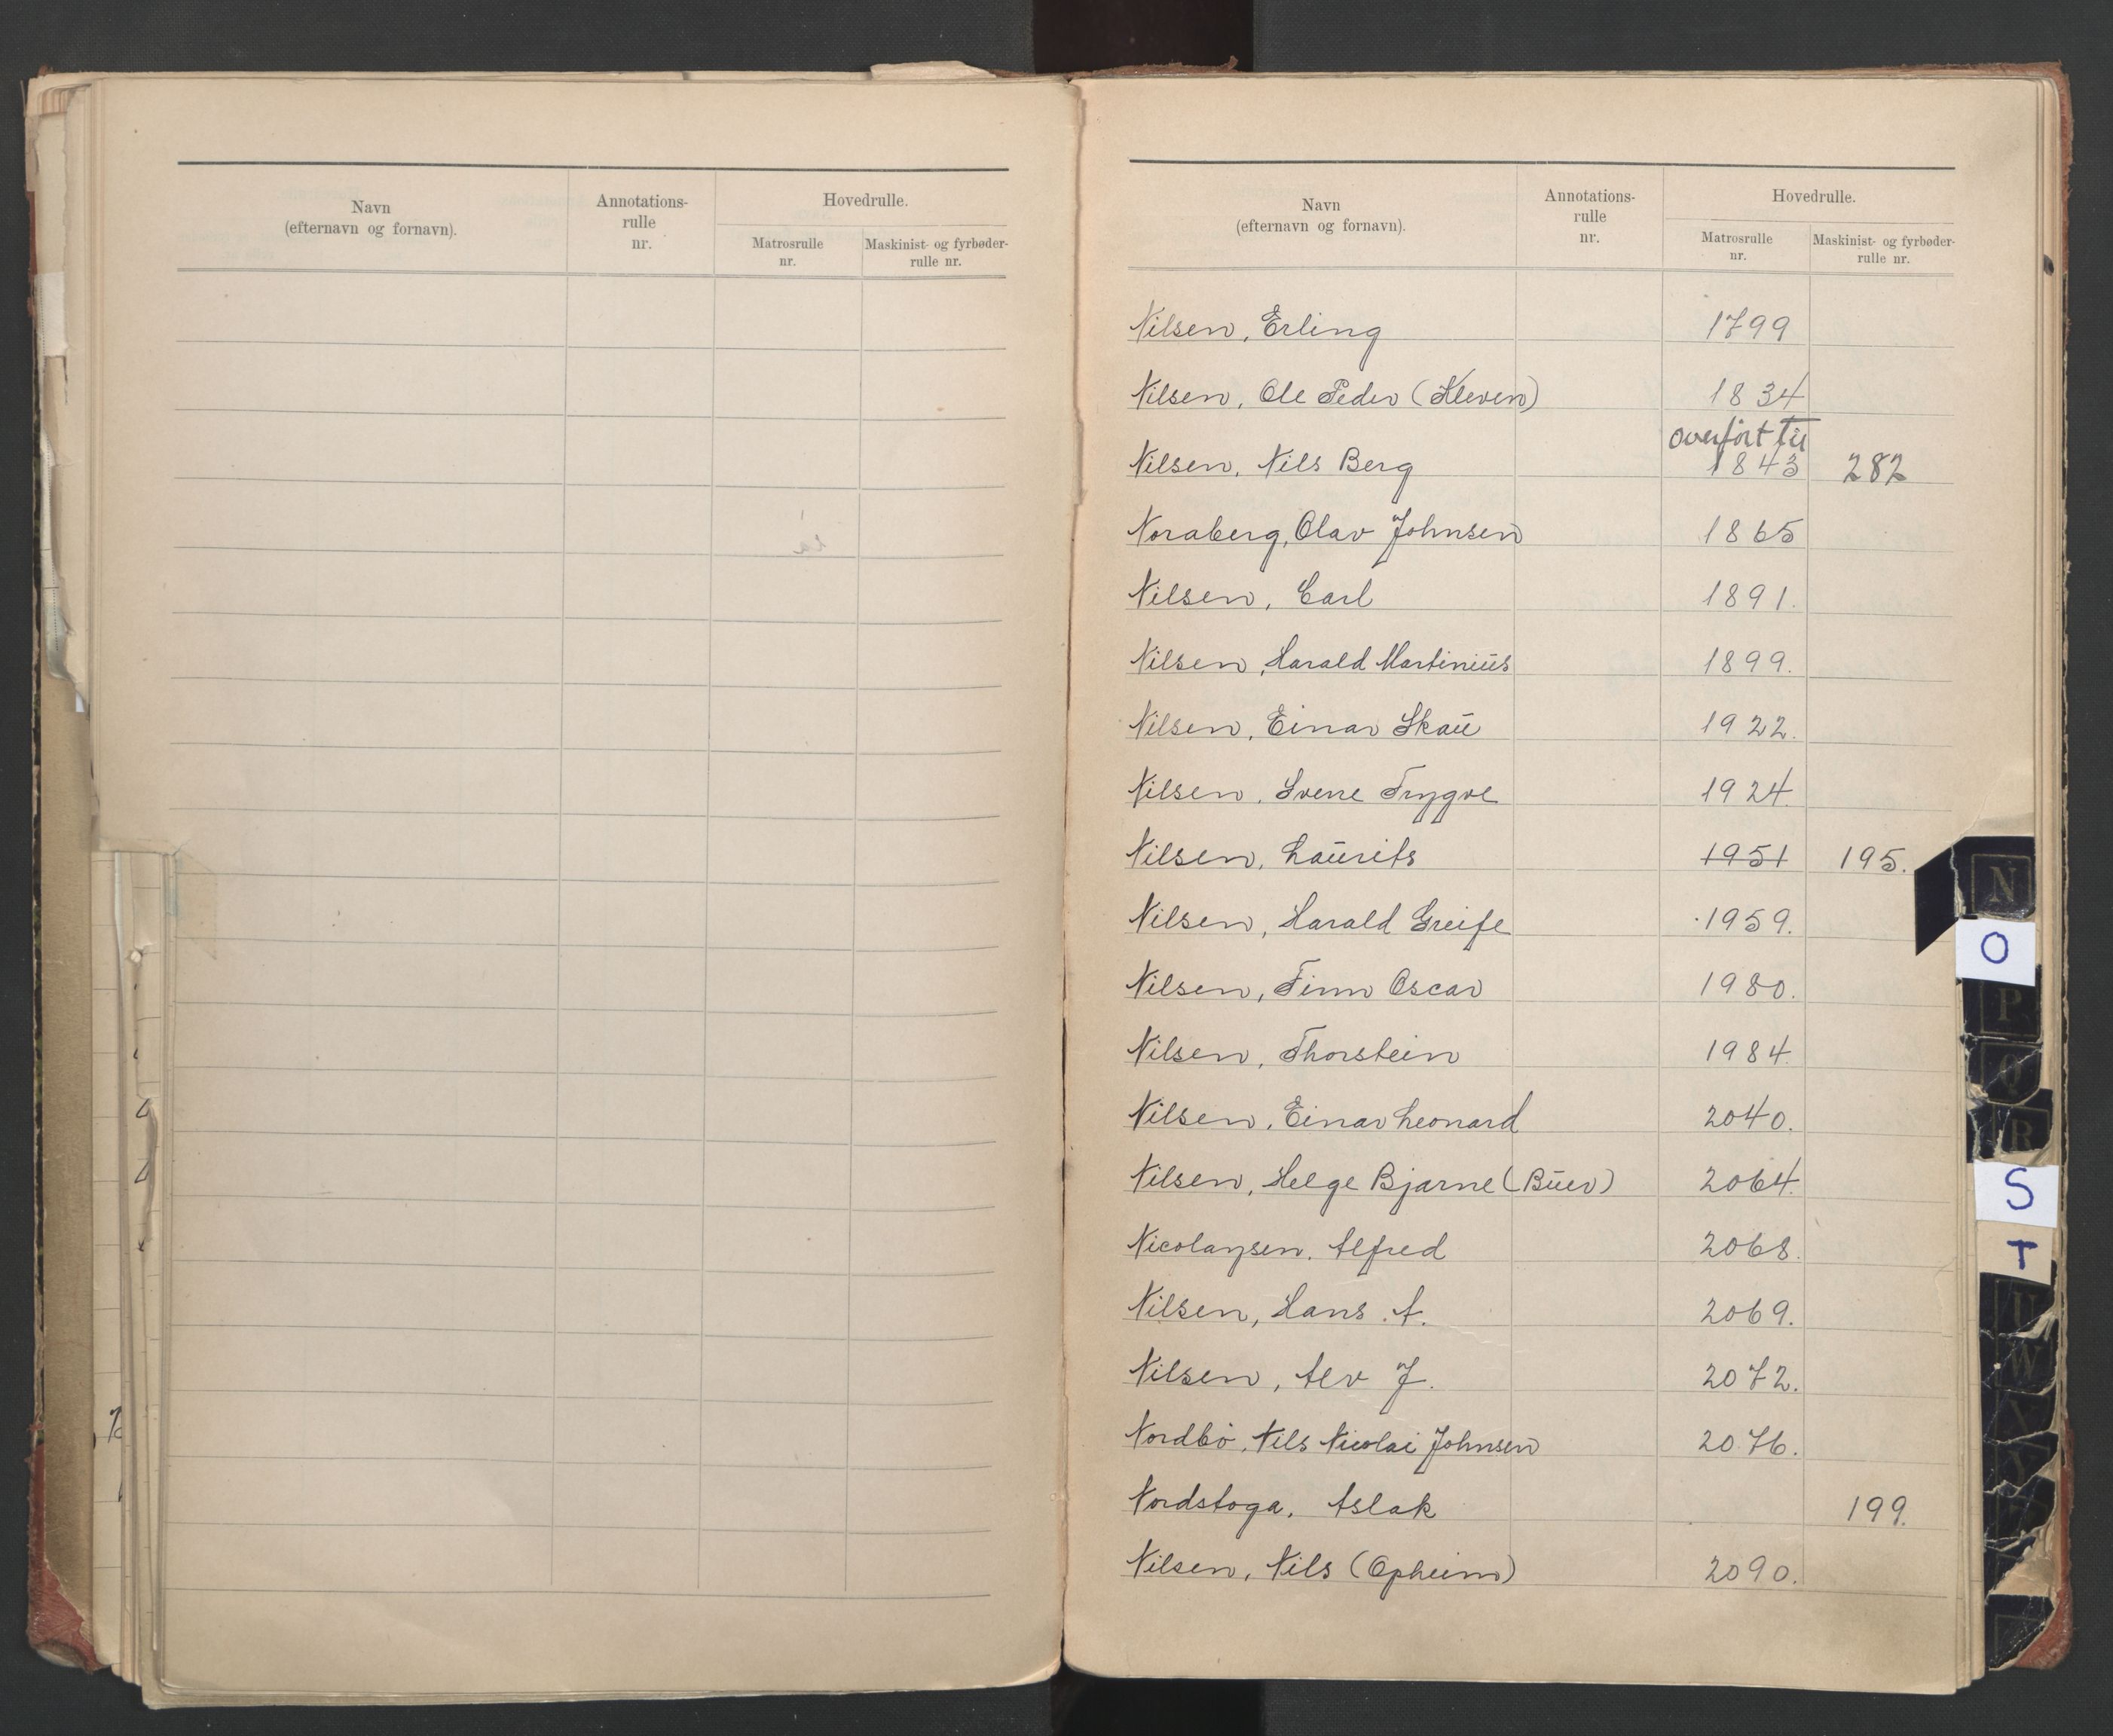 Navn
(efternavn og fornavn).
Annotations-
rulle
nr.
Hovedrulle.
Matrosrulle
nr.
Maskinist- og fyrbøder-
rulle nr.
Navn
(efternavn og fornavn).
Annotations-
rulle
nr.
Hovedrulle.
Matrosrulle
nr.
Maskinist- og fyrbøder-
rulle nr.
Nilsen, Erling 1799
Nilsen, Ole Peder (Kleven) 1834
overført til
Nilsen, Nils Berg 1843 282
Noraberg, Olav Johnsen 1865
Nilsen, Carl 1891.
Nilsen, Harald Martinius 1899.
Nilsen, Einar Skau 1922.
Nilsen, Sverre Trygve 1924.
Nilsen, Laurits 1951 195.
Nilsen, Harald Greife 1959.
Nilsen, Finn Oscar 1980.
Nilsen, Thorstein 1984.
Nilsen, Einar Leonard 2040.
Nilsen, Helge Bjarne (Buer) 2064.
Nicolaysen, Alfred 2068.
Nilsen, Hans A. 2069.
Nilsen, Alv J. 2072.
Nordbö, Nils Nicolai Johnsen 2076.
Nordstoga, Aslak 199.
Nilsen, Nils (Opheim) 2090.
N
O
P
Q
R
S
T
U
W